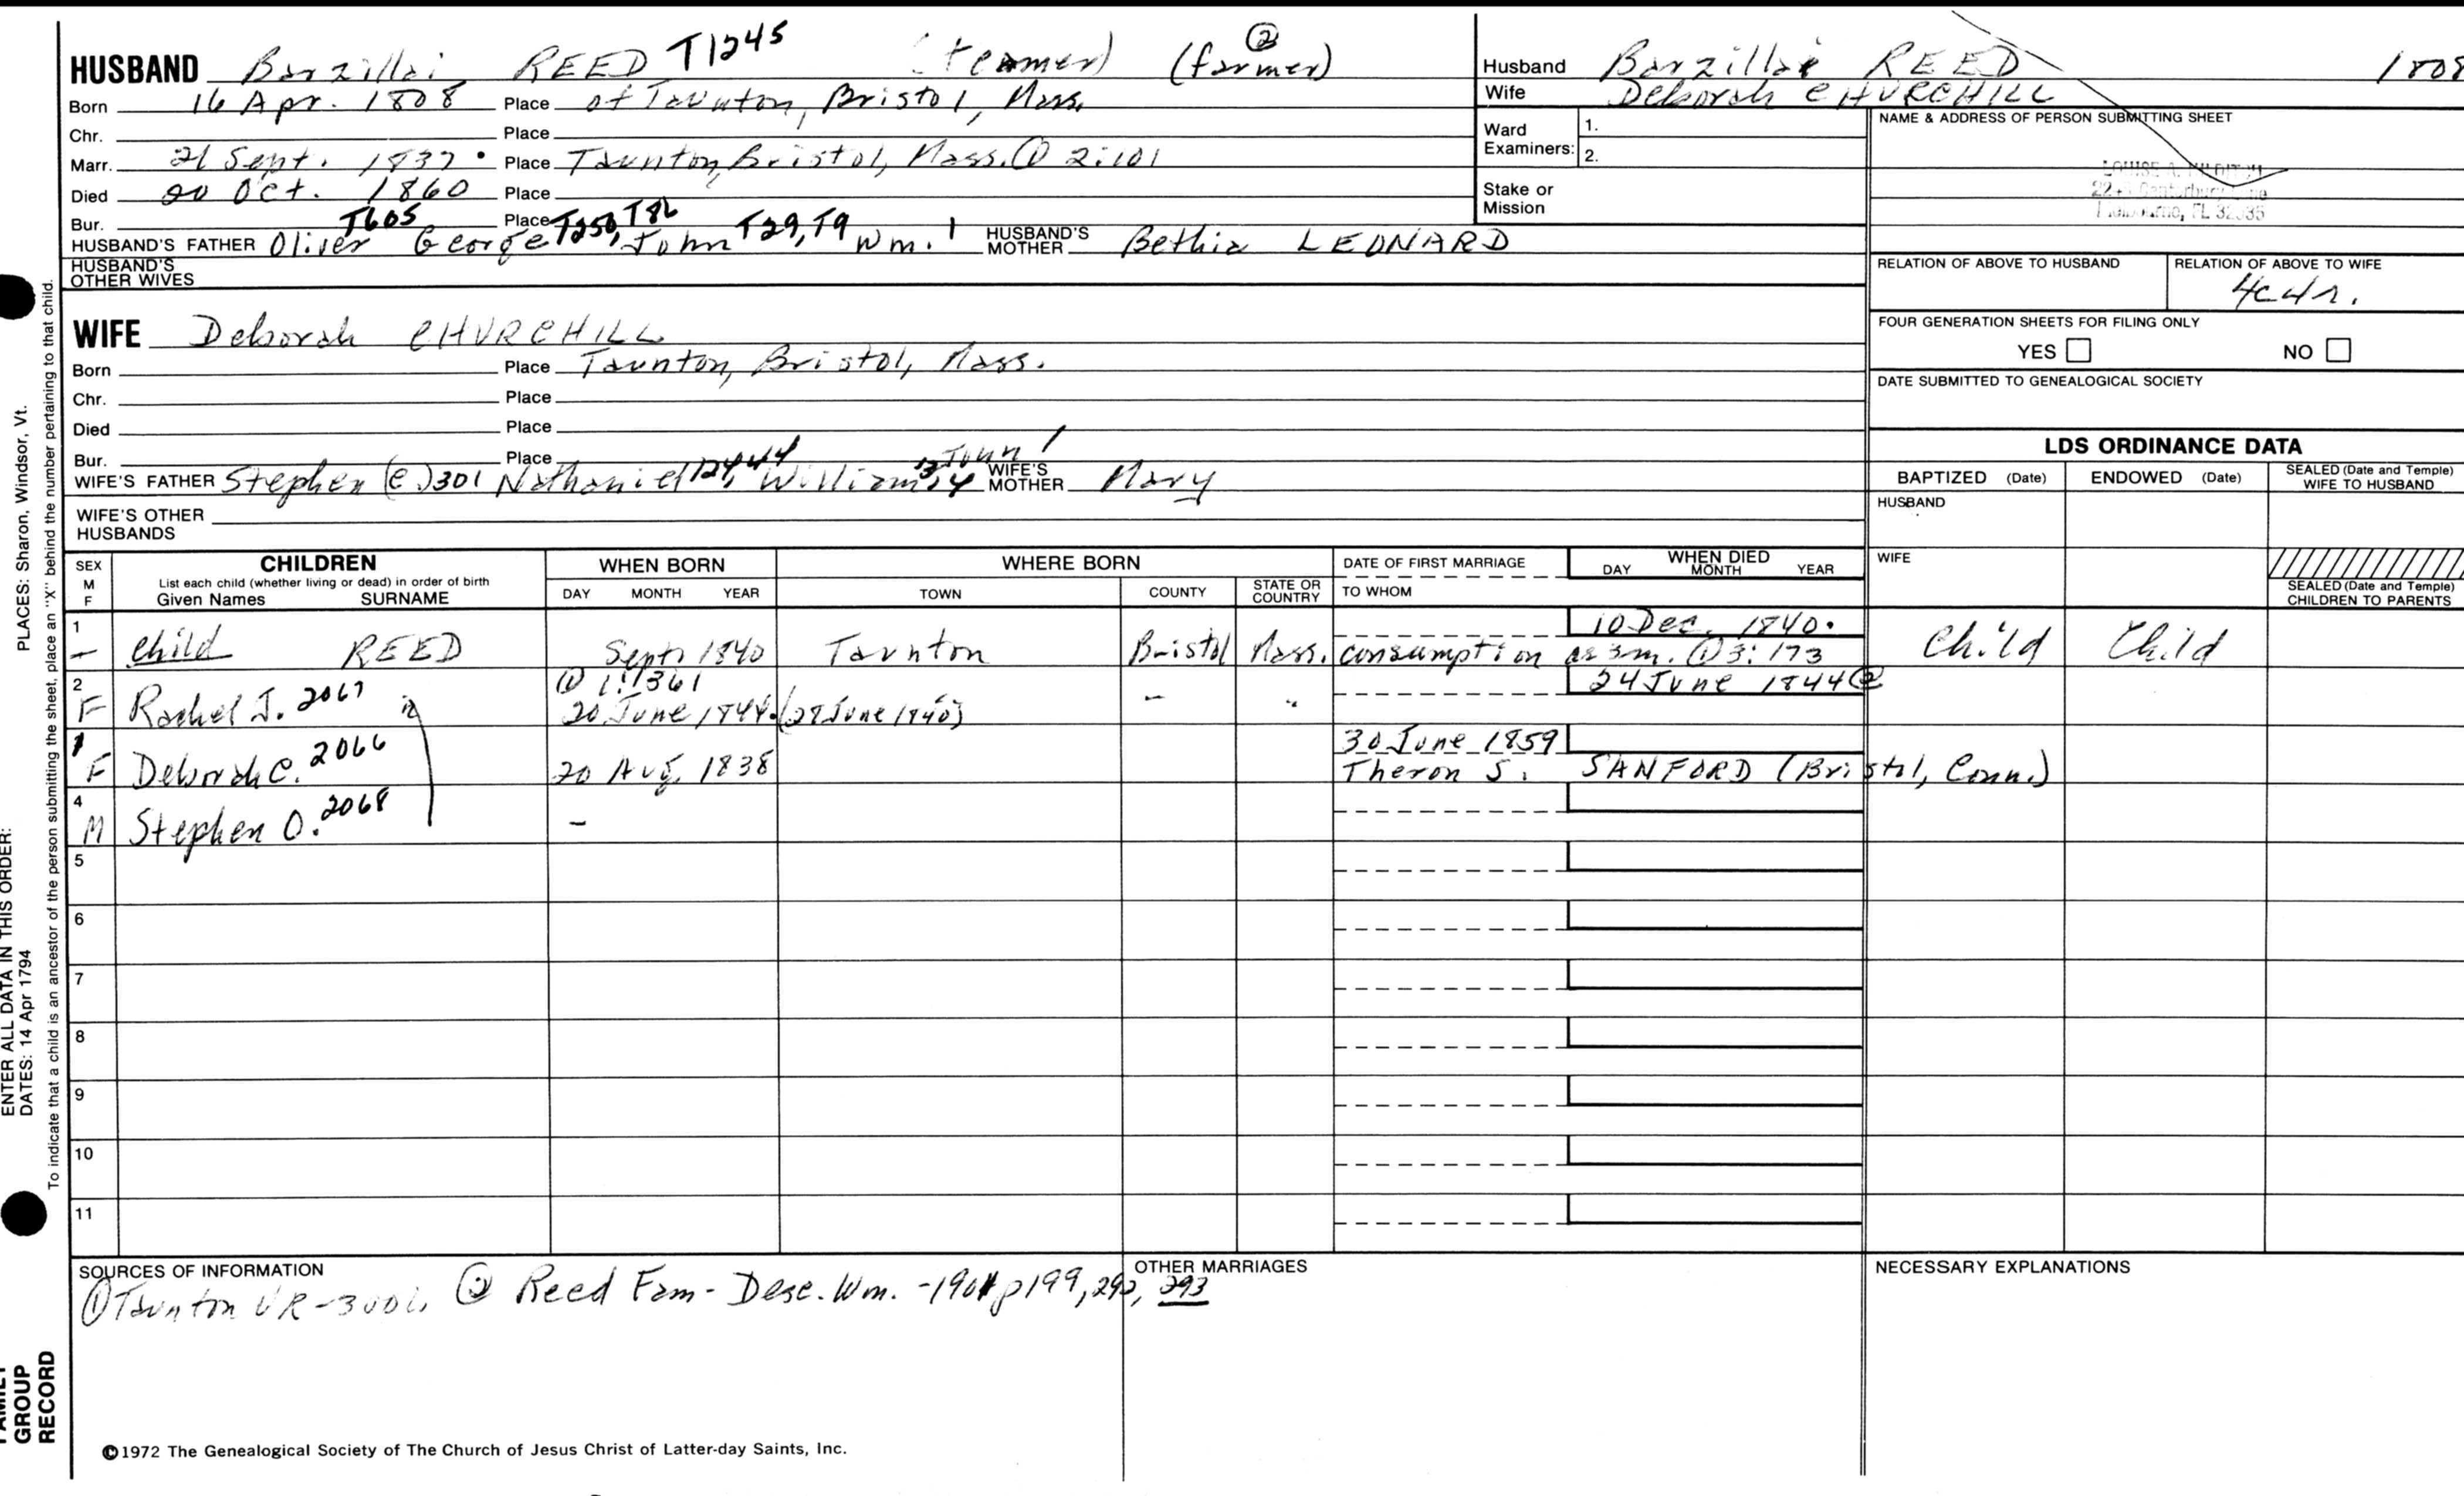 HUSBAND Barzillai REED T1245 (teamer) (farmer) ②
Born 16 Apr. 1808 Place of Taunton, Bristol, Mass.
Chr. Place
Marr. 21 Sept. 1837 · Place Taunton, Bristol, Mass. ① 2:101
Died 20 Oct. 1860 Place
Bur. Place
HUSBAND'S FATHER Oliver T605 George T250, T86 John T29, T9 Wm. 1 HUSBAND'S MOTHER Bethia LEONARD
HUSBAND'S OTHER WIVES
Husband Barzillai REED 1808
Wife Deborah CHURCHILL
Ward Examiners: 1.
2.
Stake or Mission
NAME & ADDRESS OF PERSON SUBMITTING SHEET
LOUISE A.
Canterbury
FL
RELATION OF ABOVE TO HUSBAND
RELATION OF ABOVE TO WIFE
4c4r.
FOUR GENERATION SHEETS FOR FILING ONLY
YES NO
DATE SUBMITTED TO GENEALOGICAL SOCIETY
WIFE Deborah CHURCHILL
Born Place Taunton, Bristol, Mass.
Chr. Place
Died Place
Bur. Place
WIFE'S FATHER Stephen (C)301 Nathaniel William John 1 WIFE'S MOTHER Mary
WIFE'S OTHER HUSBANDS
LDS ORDINANCE DATA
BAPTIZED (Date) ENDOWED (Date) SEALED (Date and Temple) WIFE TO HUSBAND
HUSBAND
WIFE
SEALED (Date and Temple) CHILDREN TO PARENTS
SEX M F
CHILDREN
List each child (whether living or dead) in order of birth
Given Names SURNAME
WHEN BORN
DAY MONTH YEAR
WHERE BORN
TOWN COUNTY STATE OR COUNTRY
DATE OF FIRST MARRIAGE
TO WHOM
WHEN DIED
DAY MONTH YEAR
1 10 Dec. 1840 ·
– Child REED Sept. 1840 Taunton Bristol Mass. consumption ae 3m. ① 3:173 Child Child
2 ① 1:361 24 June 1844 ②
F Rachel J. 2067 20 June 1844 · (28 June 1840) – "
1 30 June 1859
F Deborah C. 2066 20 Aug. 1838 Theron S. SANFORD (Bristol, Conn.)
4
M Stephen O. 2068 –
5
6
7
8
9
10
11
SOURCES OF INFORMATION
① Taunton VR- ② Reed Fam- Desc. Wm. -1901 p199, 292, 293
OTHER MARRIAGES
NECESSARY EXPLANATIONS
©1972 The Genealogical Society of The Church of Jesus Christ of Latter-day Saints, Inc.
PLACES: Sharon, Windsor, Vt.
ENTER ALL DATA IN THIS ORDER:
DATES: 14 Apr 1794
To indicate that a child is an ancestor of the person submitting the sheet, place an "X" behind the number pertaining to that child.
FAMILY GROUP RECORD